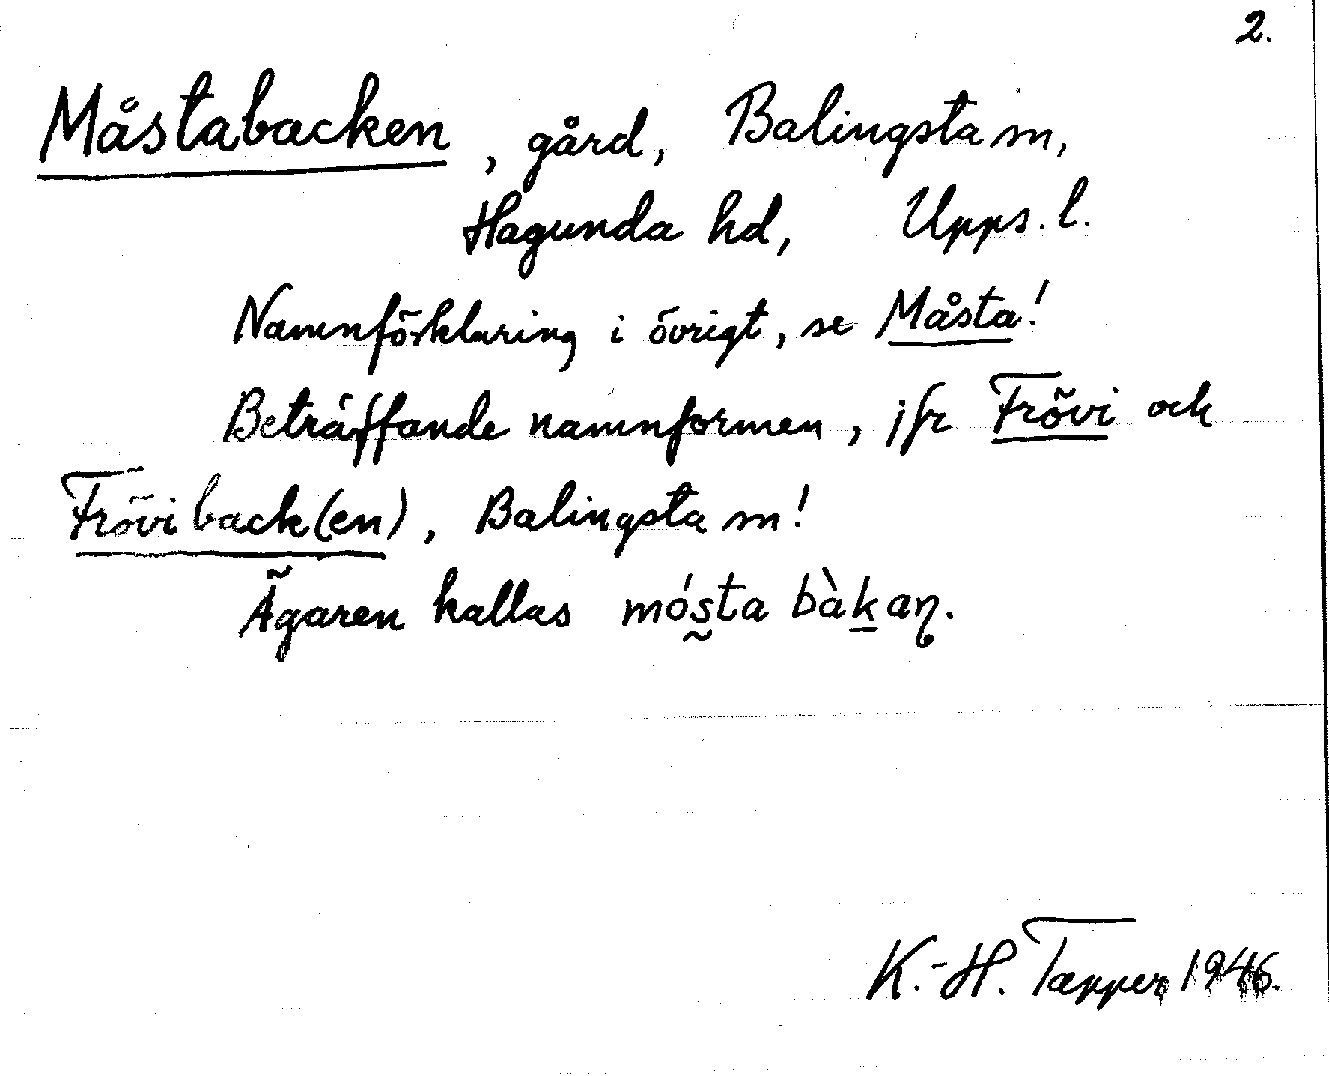 2.
Måstabacken, gård, Balingsta sn,
Hagunda hd, Upps. l.
Namnförklaring i övrigt, se Måsta!
Beträffande namnformen, jfr Frövi och
Frövi back(en), Balingsta sn!
Ägaren kallas mósta bàkaŋ.
K.-H. Tapper, 1946.